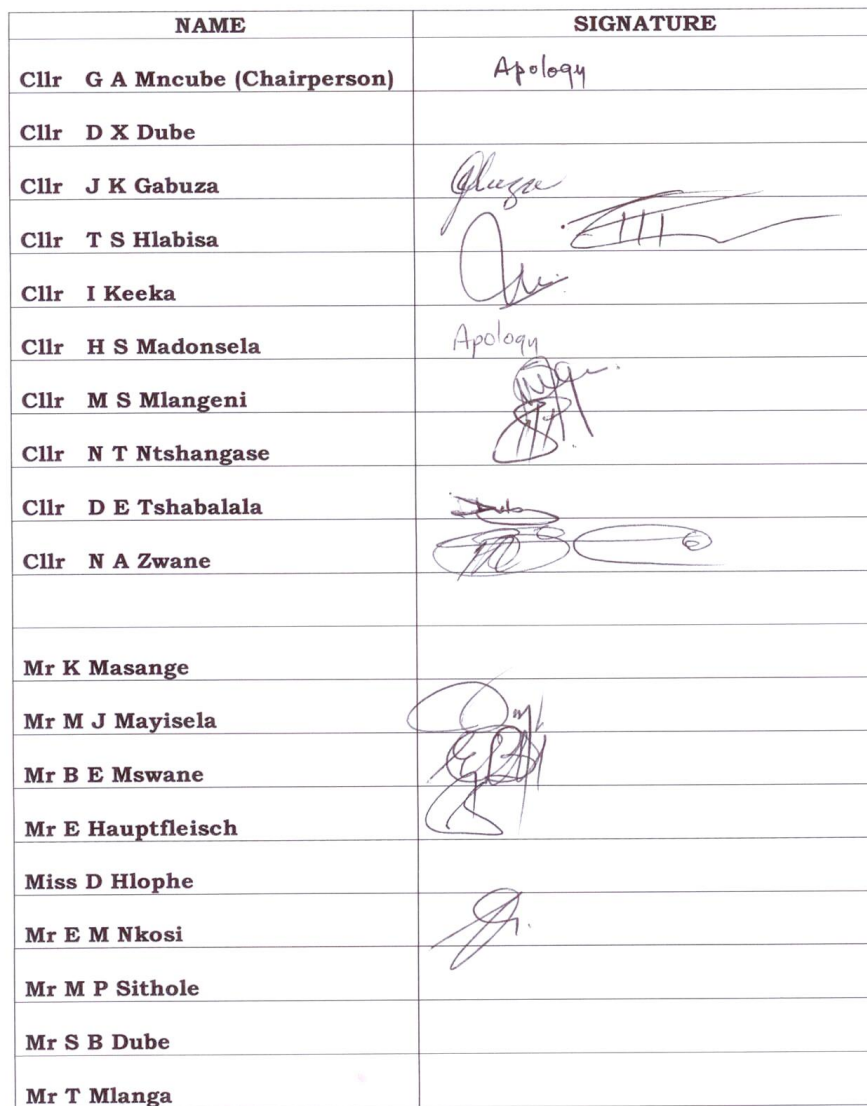 NAME SIGNATURE
Cllr G A Mncube (Chairperson) Apology
Cllr D X Dube
Cllr J K Gabuza
Cllr T S Hlabisa
Cllr I Keeka
Cllr H S Madonsela Apology
Cllr M S Mlangeni
Cllr N T Ntshangase
Cllr D E Tshabalala
Cllr N A Zwane
Mr K Masange
Mr M J Mayisela
Mr B E Mswane
Mr E Hauptfleisch
Miss D Hlophe
Mr E M Nkosi
Mr M P Sithole
Mr S B Dube
Mr T Mlanga